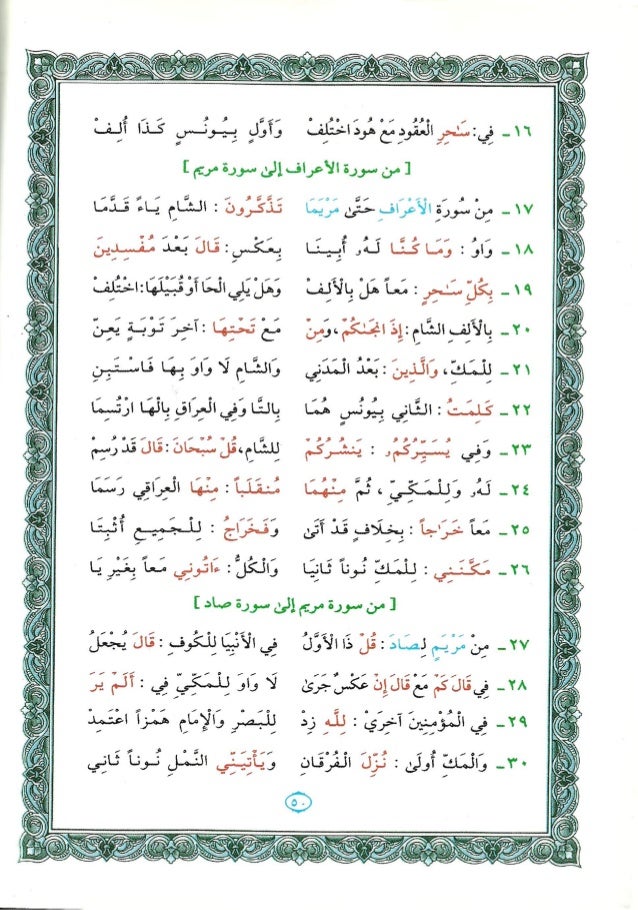 ١٦ - فِي: سَٰحِرِ الْعُقُودِ مَعْ هُودَ اخْتُلِفْ وَأَوَّلٍ بِيُونُسٍ كَذَا أُلِفْ
[ من سورة الأعراف إلى سورة مريم ]
١٧ - مِنْ سُورَةِ الْأَعْرَافِ حَتَّىٰ مَرْيَمَا تَذَّكَّرُونَ : الشَّامِ يَاءً قَدَّمَا
١٨ - وَاوُ : وَمَا كُنَّا لَهُۥ أُبِينَا بِعَكْسِ: قَالَ بَعْدَ مُفْسِدِينَ
١٩ - بِكُلِّ سَٰحِرٍ : مَعاً هَلْ بِالْأَلِفْ وَهَلْ يَلِي الْحَا أَوْ قُبَيْلَهَا: اخْتُلِفْ
٢٠ - بِالْأَلِفِ الشَّامِ: إِذْ انجَىٰكُمْ، وَمِنْ مَعْ تَحْتِهَا : آخِرَ تَوْبَةٍ يَعِنّ
٢١ - لِلْمَكِّ، وَالَّذِينَ : بَعْدُ الْمَدَنِي وَالشَّامِ لَا وَاوَ بِهَا فَاسْتَبِنِ
٢٢ - كَلِمَتُ : الثَّانِي بِيُونُسٍ هُمَا بِالتَّا وَفِي الْعِرَاقِ بِالْهَا ارْتُسِمَا
٢٣ - وَفِي يُسَيِّرُكُمُۥ : يَنشُرُكُمْ لِلشَّامِ، قُلْ سُبْحَانَ: قَالَ قَدْ رُسِمْ
٢٤ - لَهُۥ وَلِلْمَكِّيِّ ، ثُمَّ مِنْهُمَا مُنقَلَباً : مِنْهَا الْعِرَاقِي رَسَمَا
٢٥ - مَعاً خَرَاجاً : بِخِلَافٍ قَدْ أَتَىٰ وَفَخَرَاجُ : لِلْجَمِيعِ أُثْبِتَا
٢٦ - مَكَّنَنِي : لِلْمَكِّ نُوناً ثَانِيَا وَالْكُلُّ : ءَاتُونِي مَعاً بِغَيْرِ يَا
[ من سورة مريم إلى سورة صاد ]
٢٧ - مِنْ مَرْيَمٍ لِصَادَ : قُلْ ذَا الْأَوَّلُ فِي الْأَنْبِيَا لِلْكُوفِ : قَالَ يُجْعَلُ
٢٨ - فِي قَالَ كَمْ مَعْ قَالَ إِنْ عَكْسٌ جَرَىٰ لَا وَاوَ لِلْمَكِّيِّ فِي : أَلَمْ يَرَ
٢٩ - فِي الْمُؤْمِنِينَ آخِرَيْ : لِلَّهِ زِدْ لِلْبَصْرِ وَالْإِمَامِ هَمْزاً اعْتَمِدْ
٣٠ - وَالْمَكِّ أُولَىٰ : نُزِّلَ الْفُرْقَانِ وَيَأْتِيَنِّي النَّمْلِ نُوناً ثَانِي
٥٠